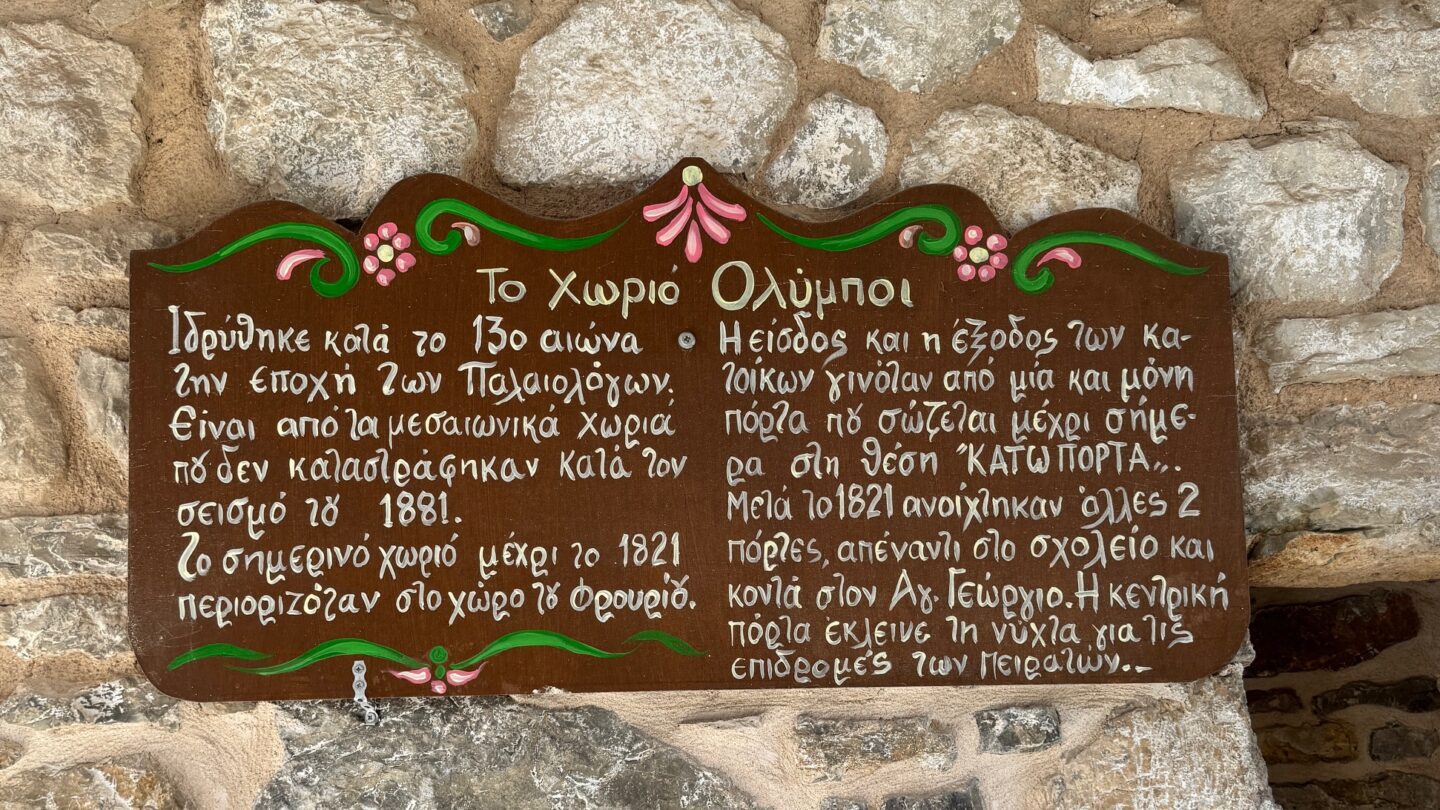 Το Χωριό Ολύμποι
Ιδρύθηκε κατά το 13ο αιώνα
την εποχή των Παλαιολόγων.
Είναι από τα μεσαιωνικά χωριά
πȣ δεν καταστράφηκαν κατά τον
σεισμό τȣ 1881.
Το σημερινό χωριό μέχρι το 1821
περιοριζόταν στο χώρο τȣ Φρουρίȣ.
Η είσοδος και η έξοδος των κα-
τοίκων γινόταν από μία και μόνη
πόρτα πȣ σώζεται μέχρι σήμε-
ρα στη θέση "ΚΑΤΩ ΠΟΡΤΑ„.
Μετά το 1821 ανοίχτηκαν άλλες 2
πόρτες, απέναντι στο σχολείο και
κοντά στον Αγ. Γεώργιο. Η κεντρική
πόρτα έκλεινε τη νύχτα για τις
επιδρομές των πειρατών..-